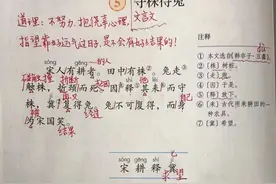 5 守株待兔
道理:不努力,抱侥幸心理, 文言文
指望靠好运气过日子,是不会有好结果的!
sòng gēng
宋人有耕者。田中有株。兔走
触株,折颈而死。因释其耒而守
株,冀复得兔。兔不可复得,而身
为宋国笑。
结果
sòng gēng shì jì
宋 耕 释 冀
求望
注释
① 本文选自《韩非子·五蠹》。
② 〔株〕树桩。
③ 〔走〕跑。
④ 〔因〕于是。
⑤ 〔释〕放下。
⑥ 〔耒〕古代用来耕田的
一种农具。
⑦ 〔冀〕希望。